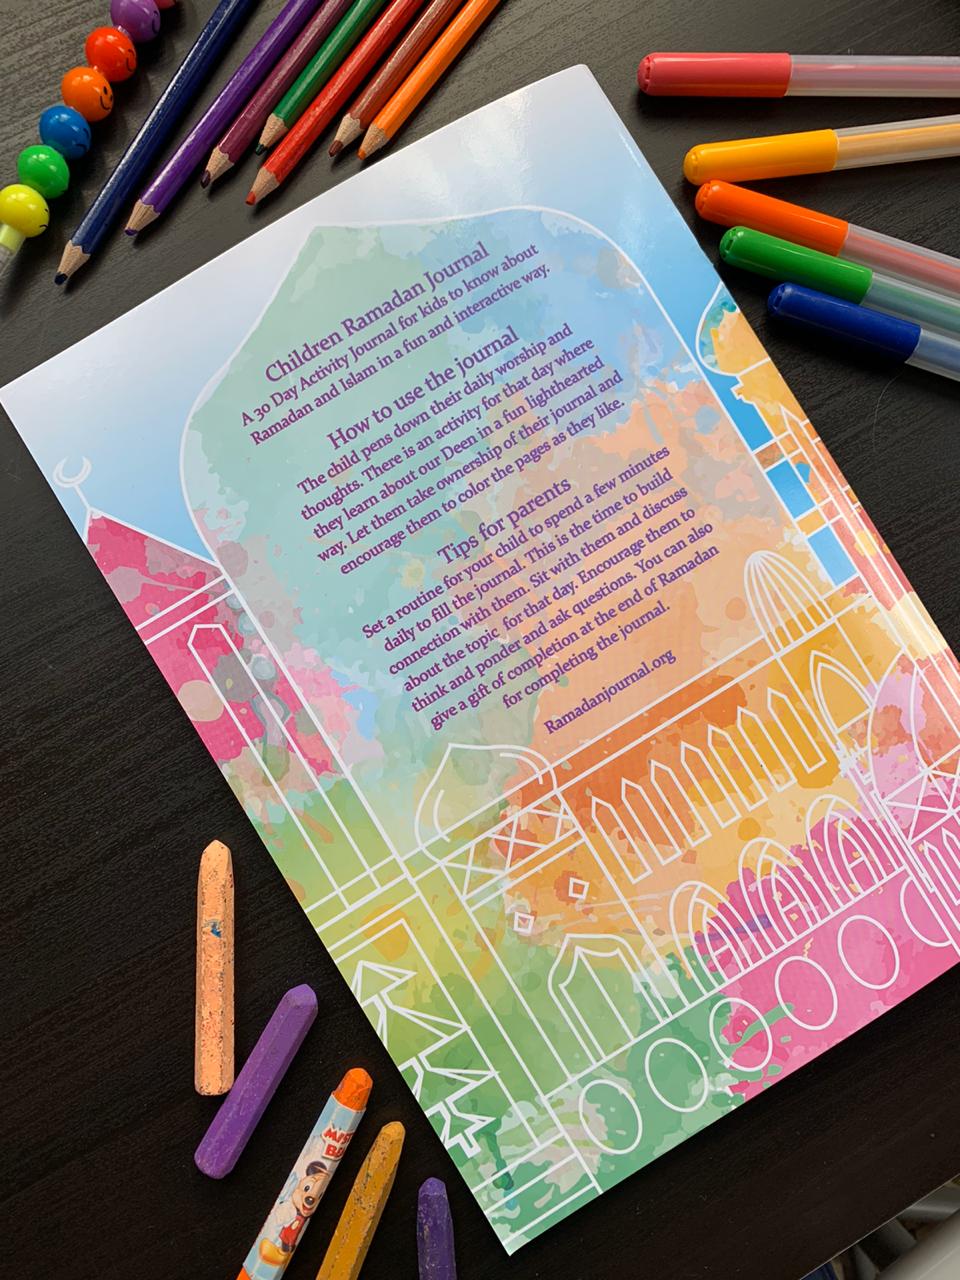 Children Ramadan Journal
A 30 Day Activity Journal for kids to know about
Ramadan and Islam in a fun and interactive way.
How to use the journal
The child pens down their daily worship and
thoughts. There is an activity for that day where
they learn about our Deen in a fun lighthearted
way. Let them take ownership of their journal and
encourage them to color the pages as they like.
Tips for parents
Set a routine for your child to spend a few minutes
daily to fill the journal. This is the time to build
connection with them. Sit with them and discuss
about the topic for that day. Encourage them to
think and ponder and ask questions. You can also
give a gift of completion at the end of Ramadan
for completing the journal.
Ramadanjournal.org